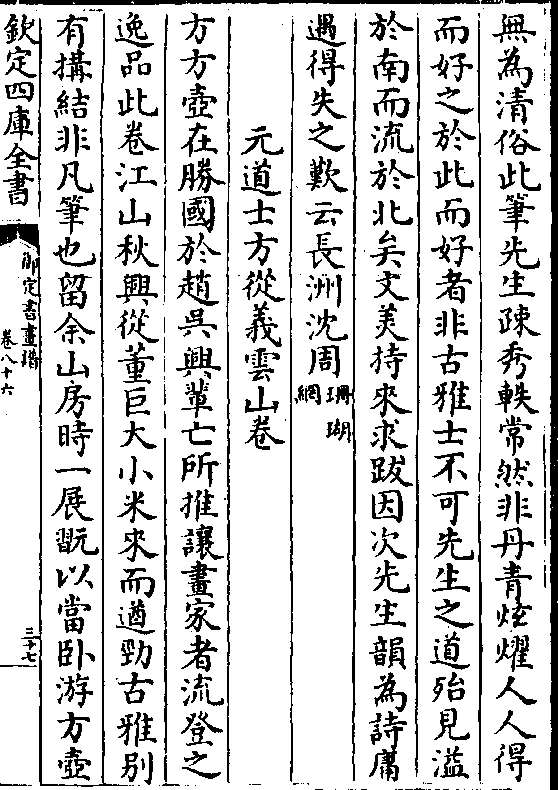 無為清俗此筆先生疎秀軼常然非丹青炫燿人人得
而好之於此而好者非古雅士不可先生之道殆見溢
於南而流於北矣文美持來求跋因次先生韻為詩庸
遇得失之歎云長洲沈周珊瑚網
元道士方從義雲山卷
方方壺在勝國於趙吳興輩亡所推讓畫家者流登之
逸品此卷江山秋興從董巨大小米來而遒勁古雅別
有搆結非凡筆也留余山房時一展翫以當卧游方壺
欽定四庫全書
御定書畫譜
卷八十六
三十七